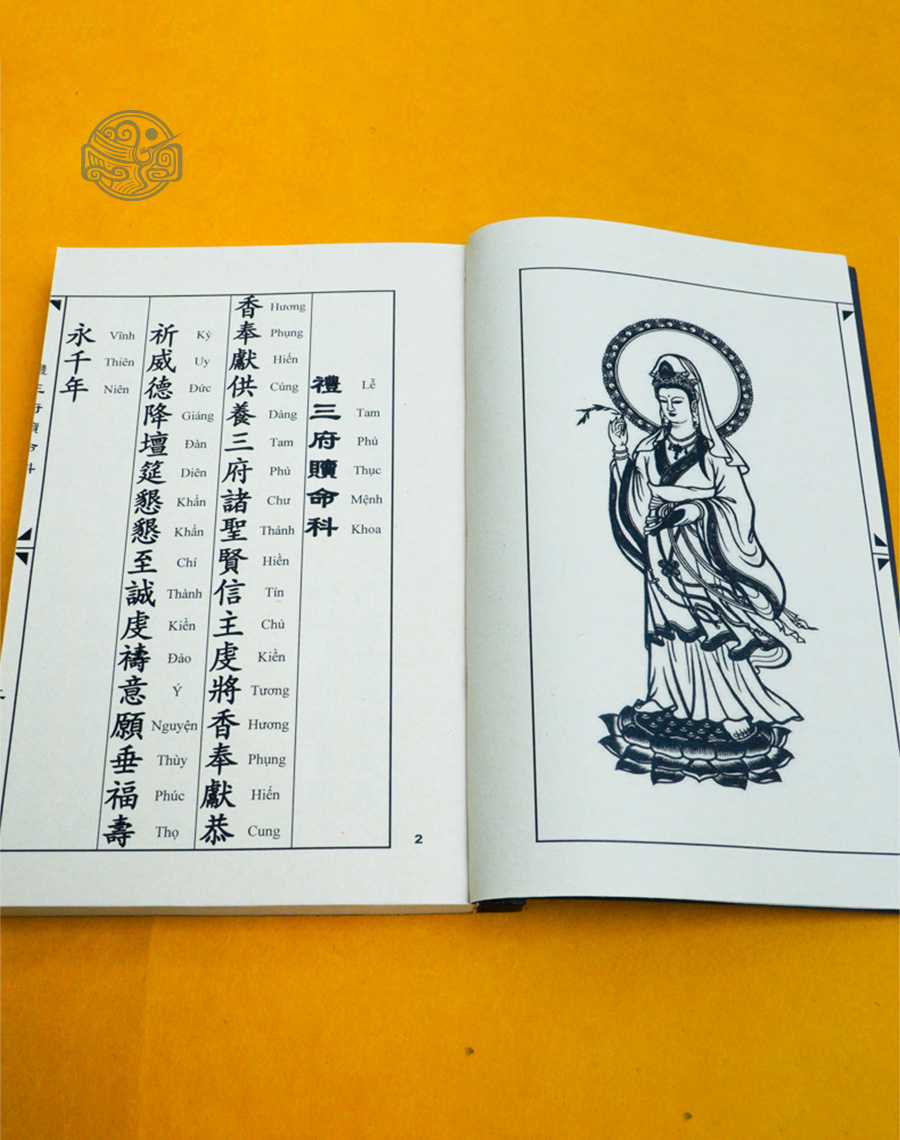 禮三府贖命科
Lễ Tam Phủ Thục Mệnh Khoa
香奉獻供養三府諸聖賢信主虔將香奉獻恭
Hương Phụng Hiến Cúng Dàng Tam Phủ Chư Thánh Hiền Tín Chủ Kiền Tương Hương Phụng Hiến Cung
祈威德降壇筵懇懇至誠虔禱意願垂福壽
Kỳ Uy Đức Giáng Đàn Diên Khẩn Khẩn Chí Thành Kiền Đảo Ý Nguyện Thùy Phúc Thọ
永千年
Vĩnh Thiên Niên
2